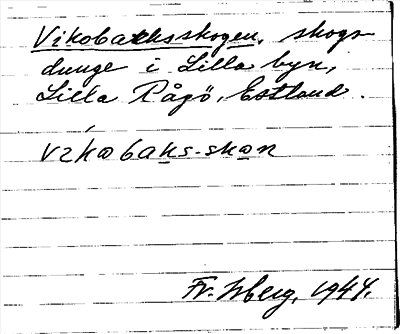 Vikobacksskogen, skogs
dunge i Lilla byn,
Lilla Rågö, Estland.
vikobaks-skon
Fr. Isberg, 1944.